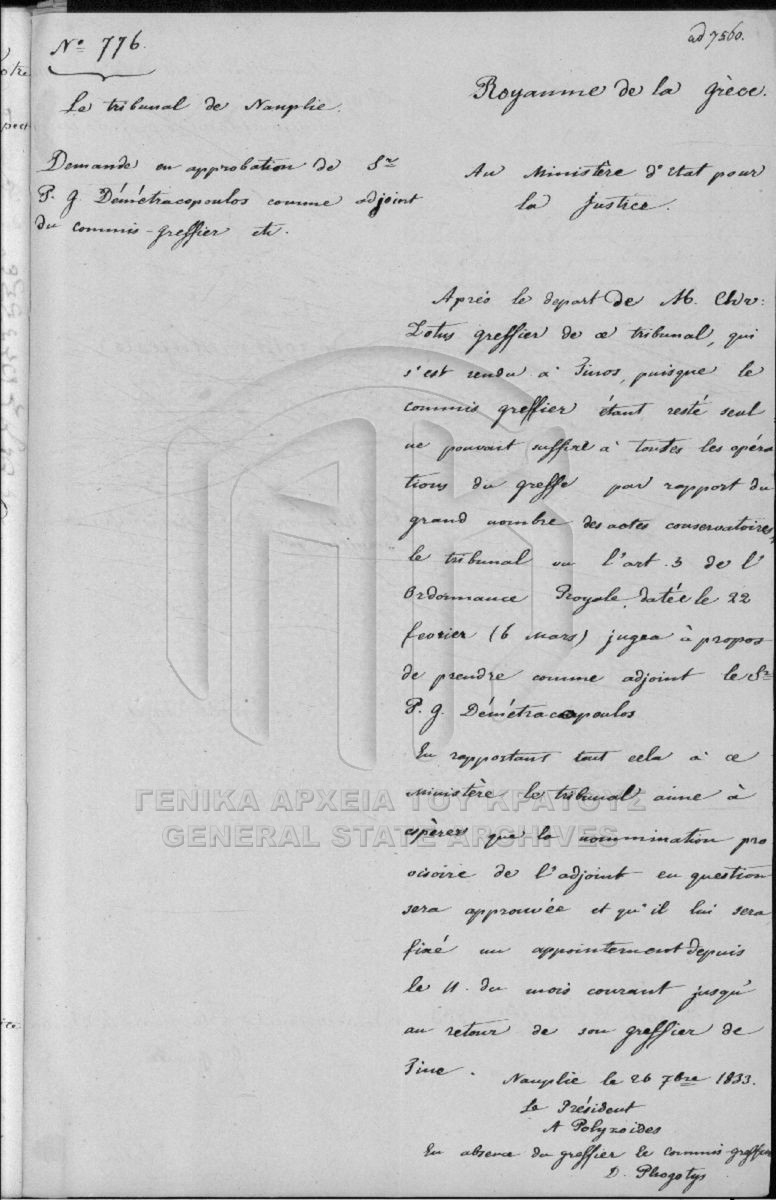 No 776.
ad 7560.
Le tribunal de Nauplie.
Royaume de la Grèce.
Demande en approbation de Sr
P. G. Démétracopoulos comme adjoint
du commis-greffier etc.
Au Ministère d'Etat pour
la Justice.
Après le depart de M. Chr:
Zotus greffier de ce tribunal, qui
s'est rendu à Tinos, puisque le
commis greffier étant resté seul
ne pouvait suffire à toutes les opéra
tions du greffe par rapport du
grand nombre des actes conservatoires,
le tribunal vu l'art. 3 de l'
Ordonnance Royale, datée le 22
fevrier (6 Mars) jugea à propos
de prendre comme adjoint le Sr
P. G. Démétracopoulos
En rapportant tout cela à ce
Ministère le tribunal aime à
espèrer que la nommination pro
visoire de l'adjoint en question
sera approuvée et qu'il lui sera
fixé un appointement depuis
le 11. du mois courant jusqu'
au retour de son greffier de
Tine.
Nauplie le 26 7bre 1833.
Le Président
A Polyzoides
En absence du greffier le commis-greffier
D. Phogotys
ΓΕΝΙΚΑ ΑΡΧΕΙΑ ΤΟΥ ΚΡΑΤΟΥΣ
GENERAL STATE ARCHIVES